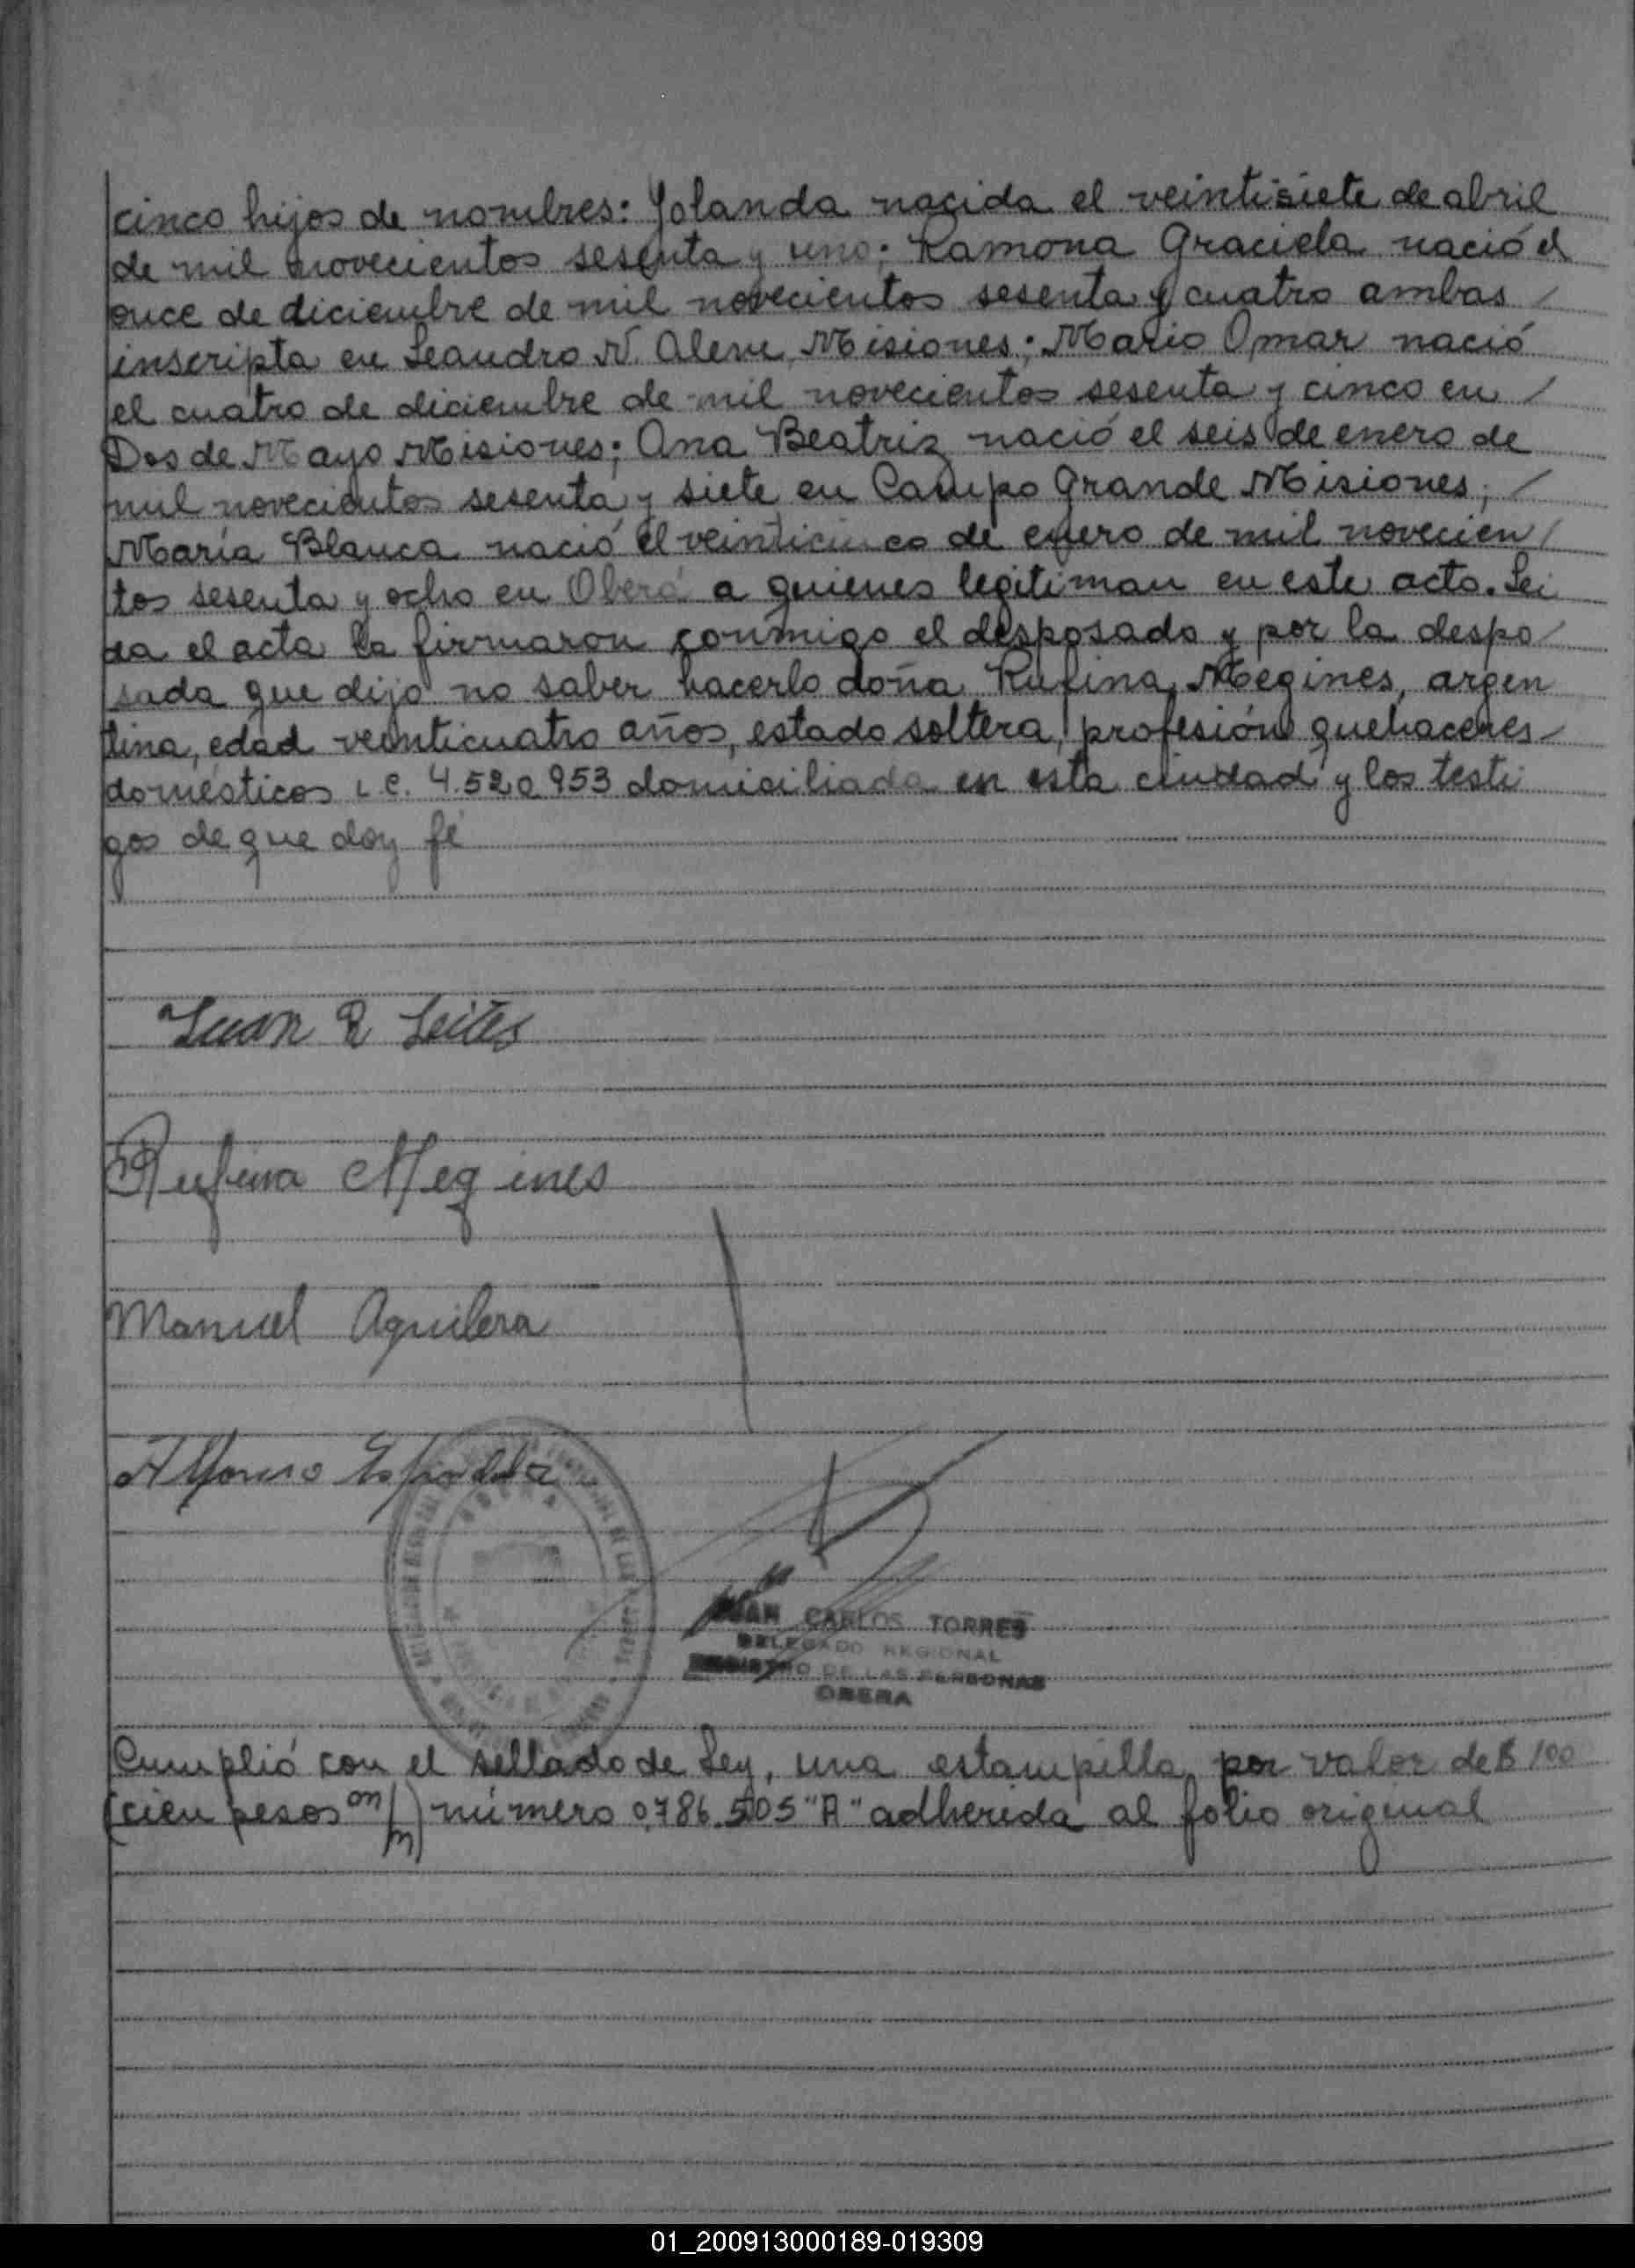 cinco hijos de nombres: Yolanda nacida el veintisiete de abril
de mil novecientos sesenta y uno; Ramona Graciela nació el
once de diciembre de mil novecientos sesenta y cuatro ambas /
inscripta en Leandro N. Alem, Misiones; Mario Omar nació
el cuatro de diciembre de mil novecientos sesenta y cinco en /
Dos de Mayo Misiones; Ana Beatriz nació el seis de enero de
mil novecientos sesenta y siete en Campo Grande Misiones; /
María Blanca nació el veinticinco de enero de mil novecien /
tos sesenta y ocho en Oberá a quienes legitiman en este acto. Lei
da el acta la firmaron conmigo el desposado y por la despo /
sada que dijo no saber hacerlo doña Rufina Megines, argen
tina, edad veinticuatro años, estado soltera, profesión quehaceres
domésticos L.C. 4.520.953 domiciliada en esta ciudad y los testi
gos de que doy fé
Juan R Leites
Rufina Megines
Manuel Aguilera
Alfonso
JUAN CARLOS TORRES
DELEGADO REGIONAL
REGISTRO DE LAS PERSONAS
OBERA
Cumplió con el sellado de Ley, una estampilla por valor de $ 100
(cien pesos m/n) número 0786.505 "A" adherida al folio original
01_200913000189-019309